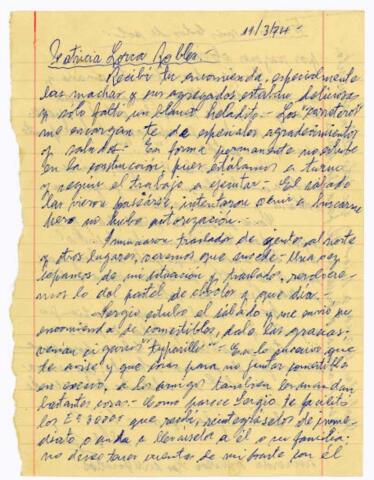 11/3/74.-
Patricia Lorca Robles.-
Recibí tu encomienda, especialmente
las machas y sus agregados estaban deliciosas
y sólo faltó un blanco helado.- Los "carreteros"
me encargan te dé especiales agradecimientos
y saludos.- En forma permanente no estuve
en la construcción, pues estábamos a turno
y según el trabajo a ejecutar.- El sábado
las fueron a buscarme,
pero no hubo autorización.-
Anunciaron traslados de gente al norte
y otros lugares, veremos que sucede.- Una vez
sepamos de mi situación y traslados, resolvere-
mos lo del pastel de choclos y que día.-
Sergio estuvo el sábado y me envió
encomienda de comestibles, dale las gracias.
venían cigarros En lo sucesivo que
te avise y que sea para no juntar comestibles
en exceso, a los amigos también les mandan
bastantes cosas.- Como parece Sergio te facilitó
los Eº 3000 que recibí, reintégraselos de inme-
diato o anda a llevárselo a él o su familia;
no deseo tener cuentas de mi parte por el